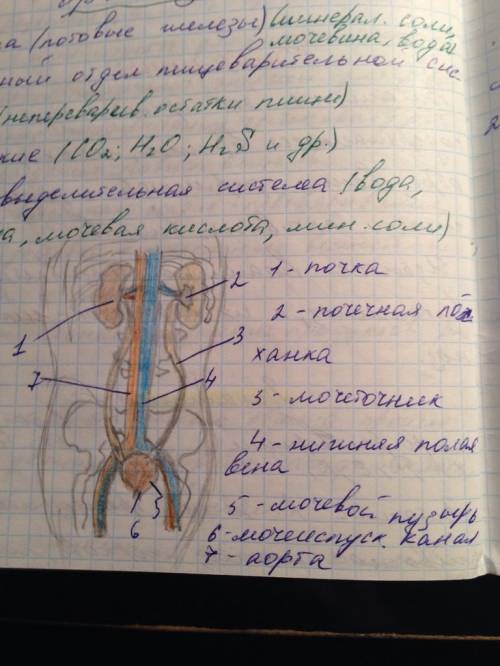 (потовые железы) (минерал. соли,
мочевина, вода
ный отдел пищеварительной сис
(неперевариев. остатки пищи)
кие (CO2; H2O; H2S и др.)
выделительная система (вода,
а, мочевая кислота, мин. соли)
1 - почка
2 - почечная лох
ханка
3 - мочеточник
4 - нижняя полая
вена
5 - мочевой пузырь
6 - мочеиспуск. канал
7 - аорта
1
2
3
7
4
5
6